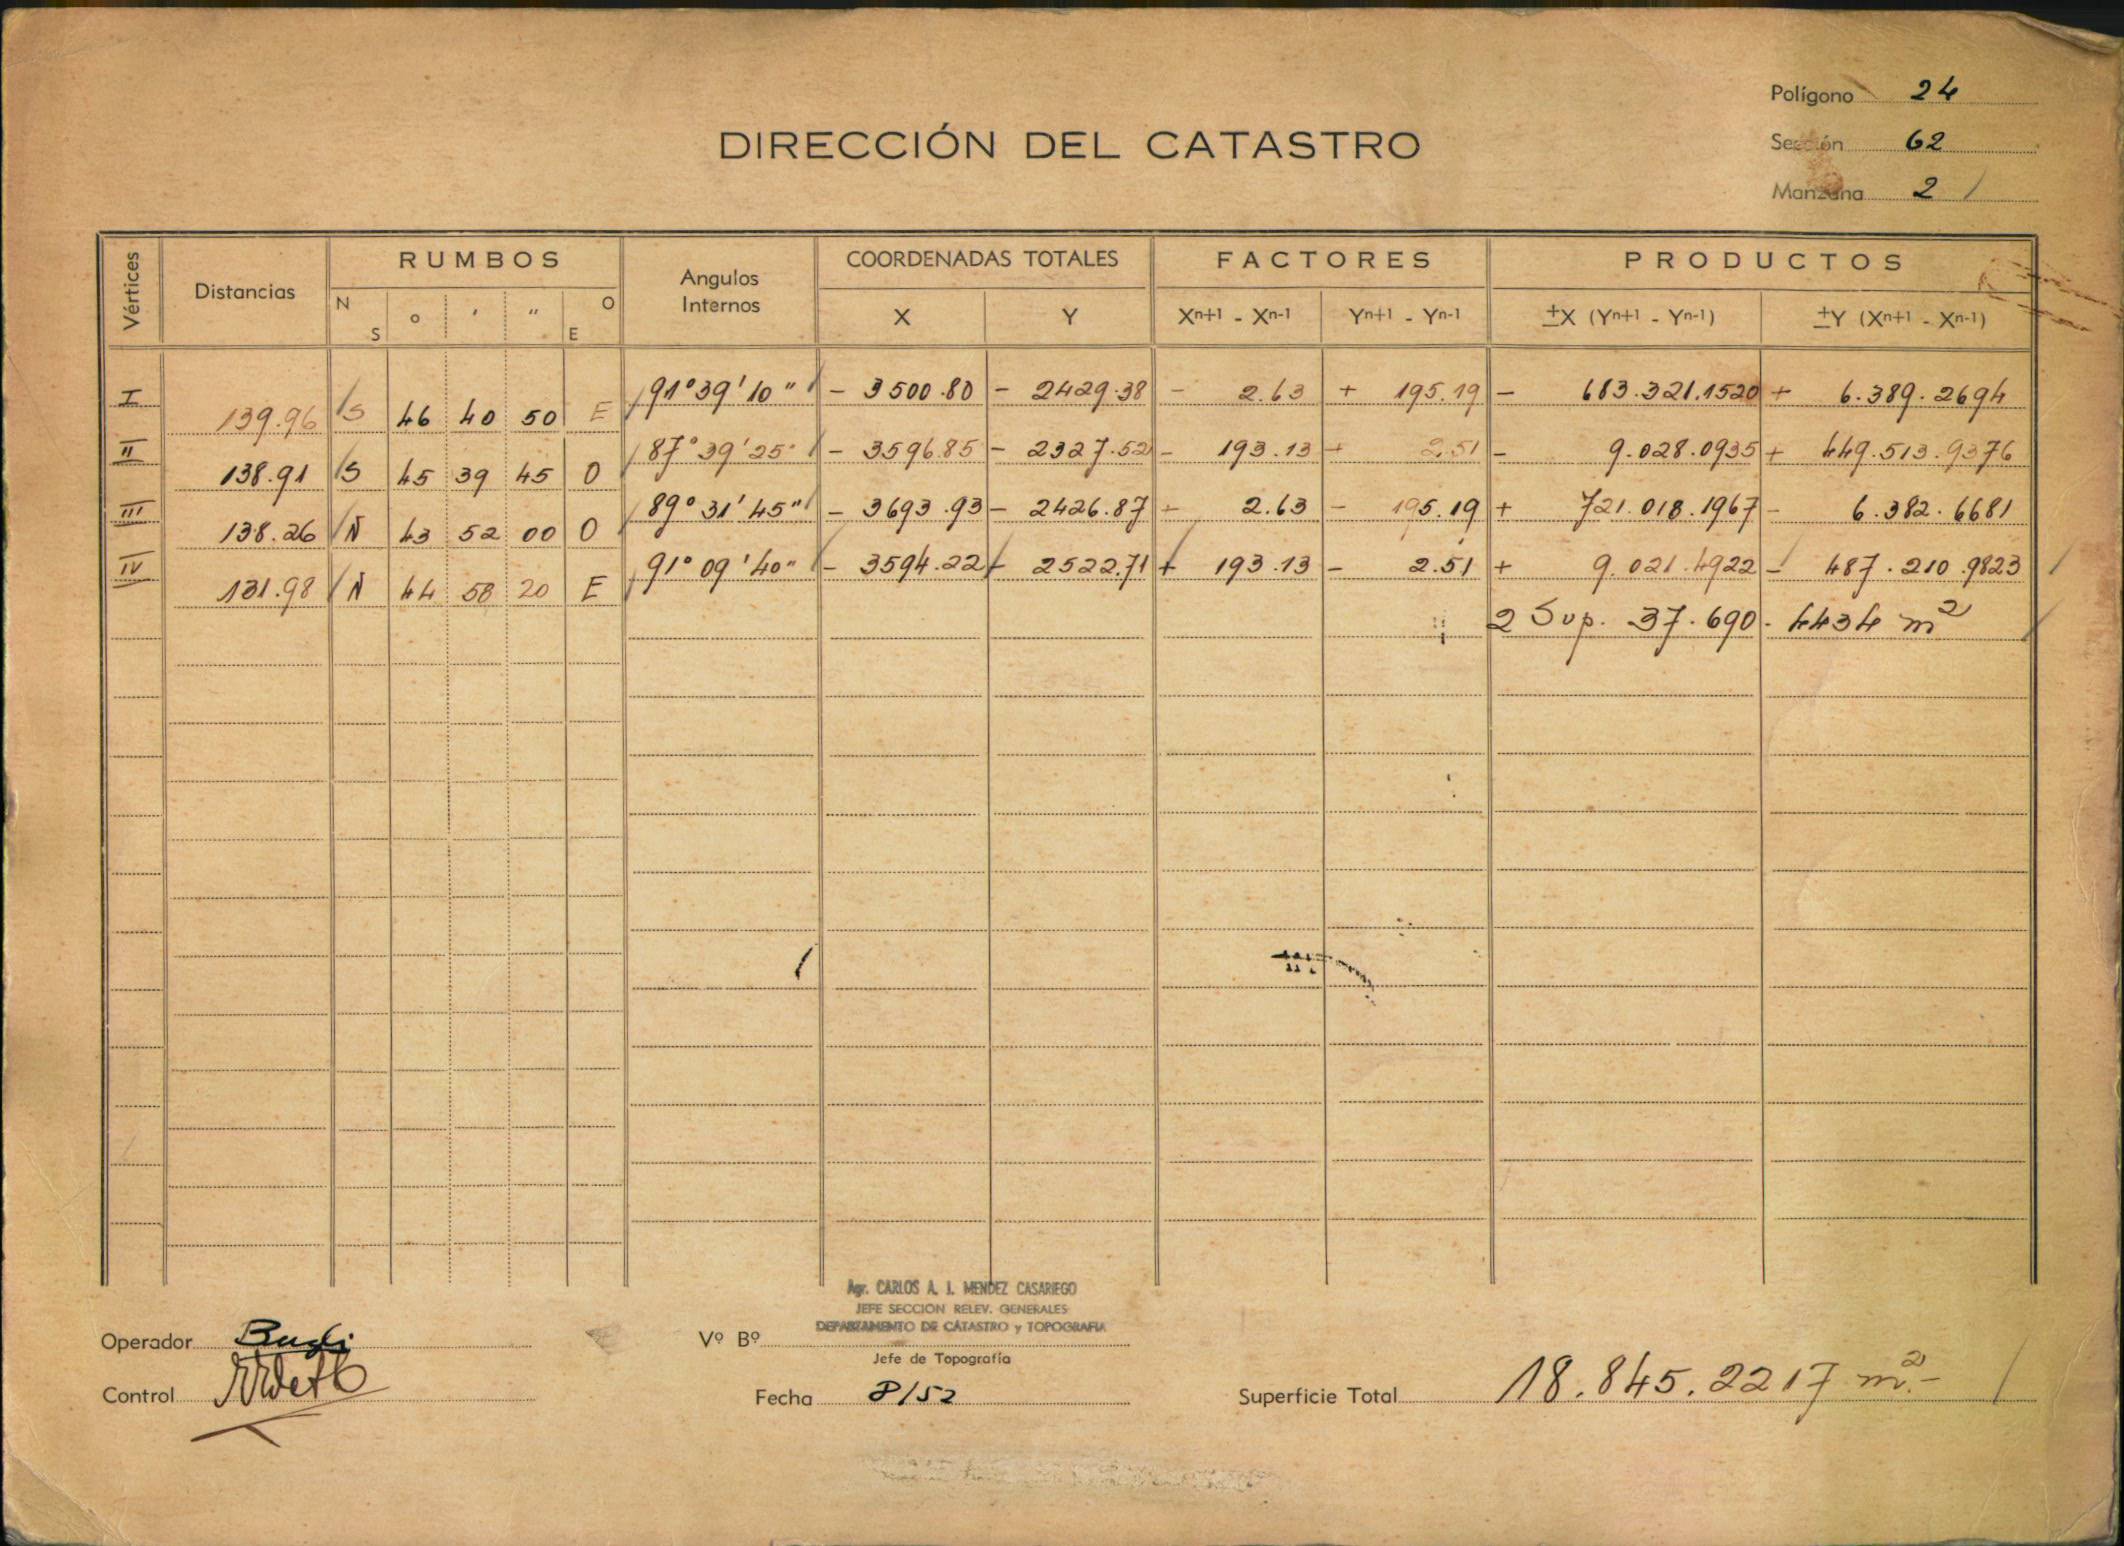 Polígono 24
DIRECCIÓN DEL CATASTRO
Sección 62
Manzana 2 /
Vértices Distancias RUMBOS Angulos Internos COORDENADAS TOTALES FACTORES PRODUCTOS
N S o ' " O E X Y Xn+1 - Xn-1 Yn+1 - Yn-1 ±X (Yn+1 - Yn-1) ±Y (Xn+1 - Xn-1)
I 91°39'10" - 3500.80 - 2429.38 - 2.63 + 195.19 - 683.321.1520 + 6.389.2694
139.96 S 46 40 50 E
II 87°39'25" - 3596.85 - 2327.52 - 193.13 + 2.51 - 9.028.0935 + 449.513.9376
138.91 S 45 39 45 O
III 89°31'45" - 3693.93 - 2426.87 + 2.63 - 195.19 + 721.018.1967 - 6.382.6681
138.26 N 43 52 00 O
IV 91°09'40" - 3594.22 - 2522.71 + 193.13 - 2.51 + 9.021.4922 - 487.210.9823
131.98 N 44 58 20 E
2 Sup. 37.690.4434 m2
Agr. CARLOS A. J. MENDEZ CASARIEGO
JEFE SECCION RELEV. GENERALES
DEPARTAMENTO DE CATASTRO y TOPOGRAFIA
Operador
Vº Bº
Jefe de Topografía
Control
Fecha 8/52
Superficie Total 18.845.2217 m2.-